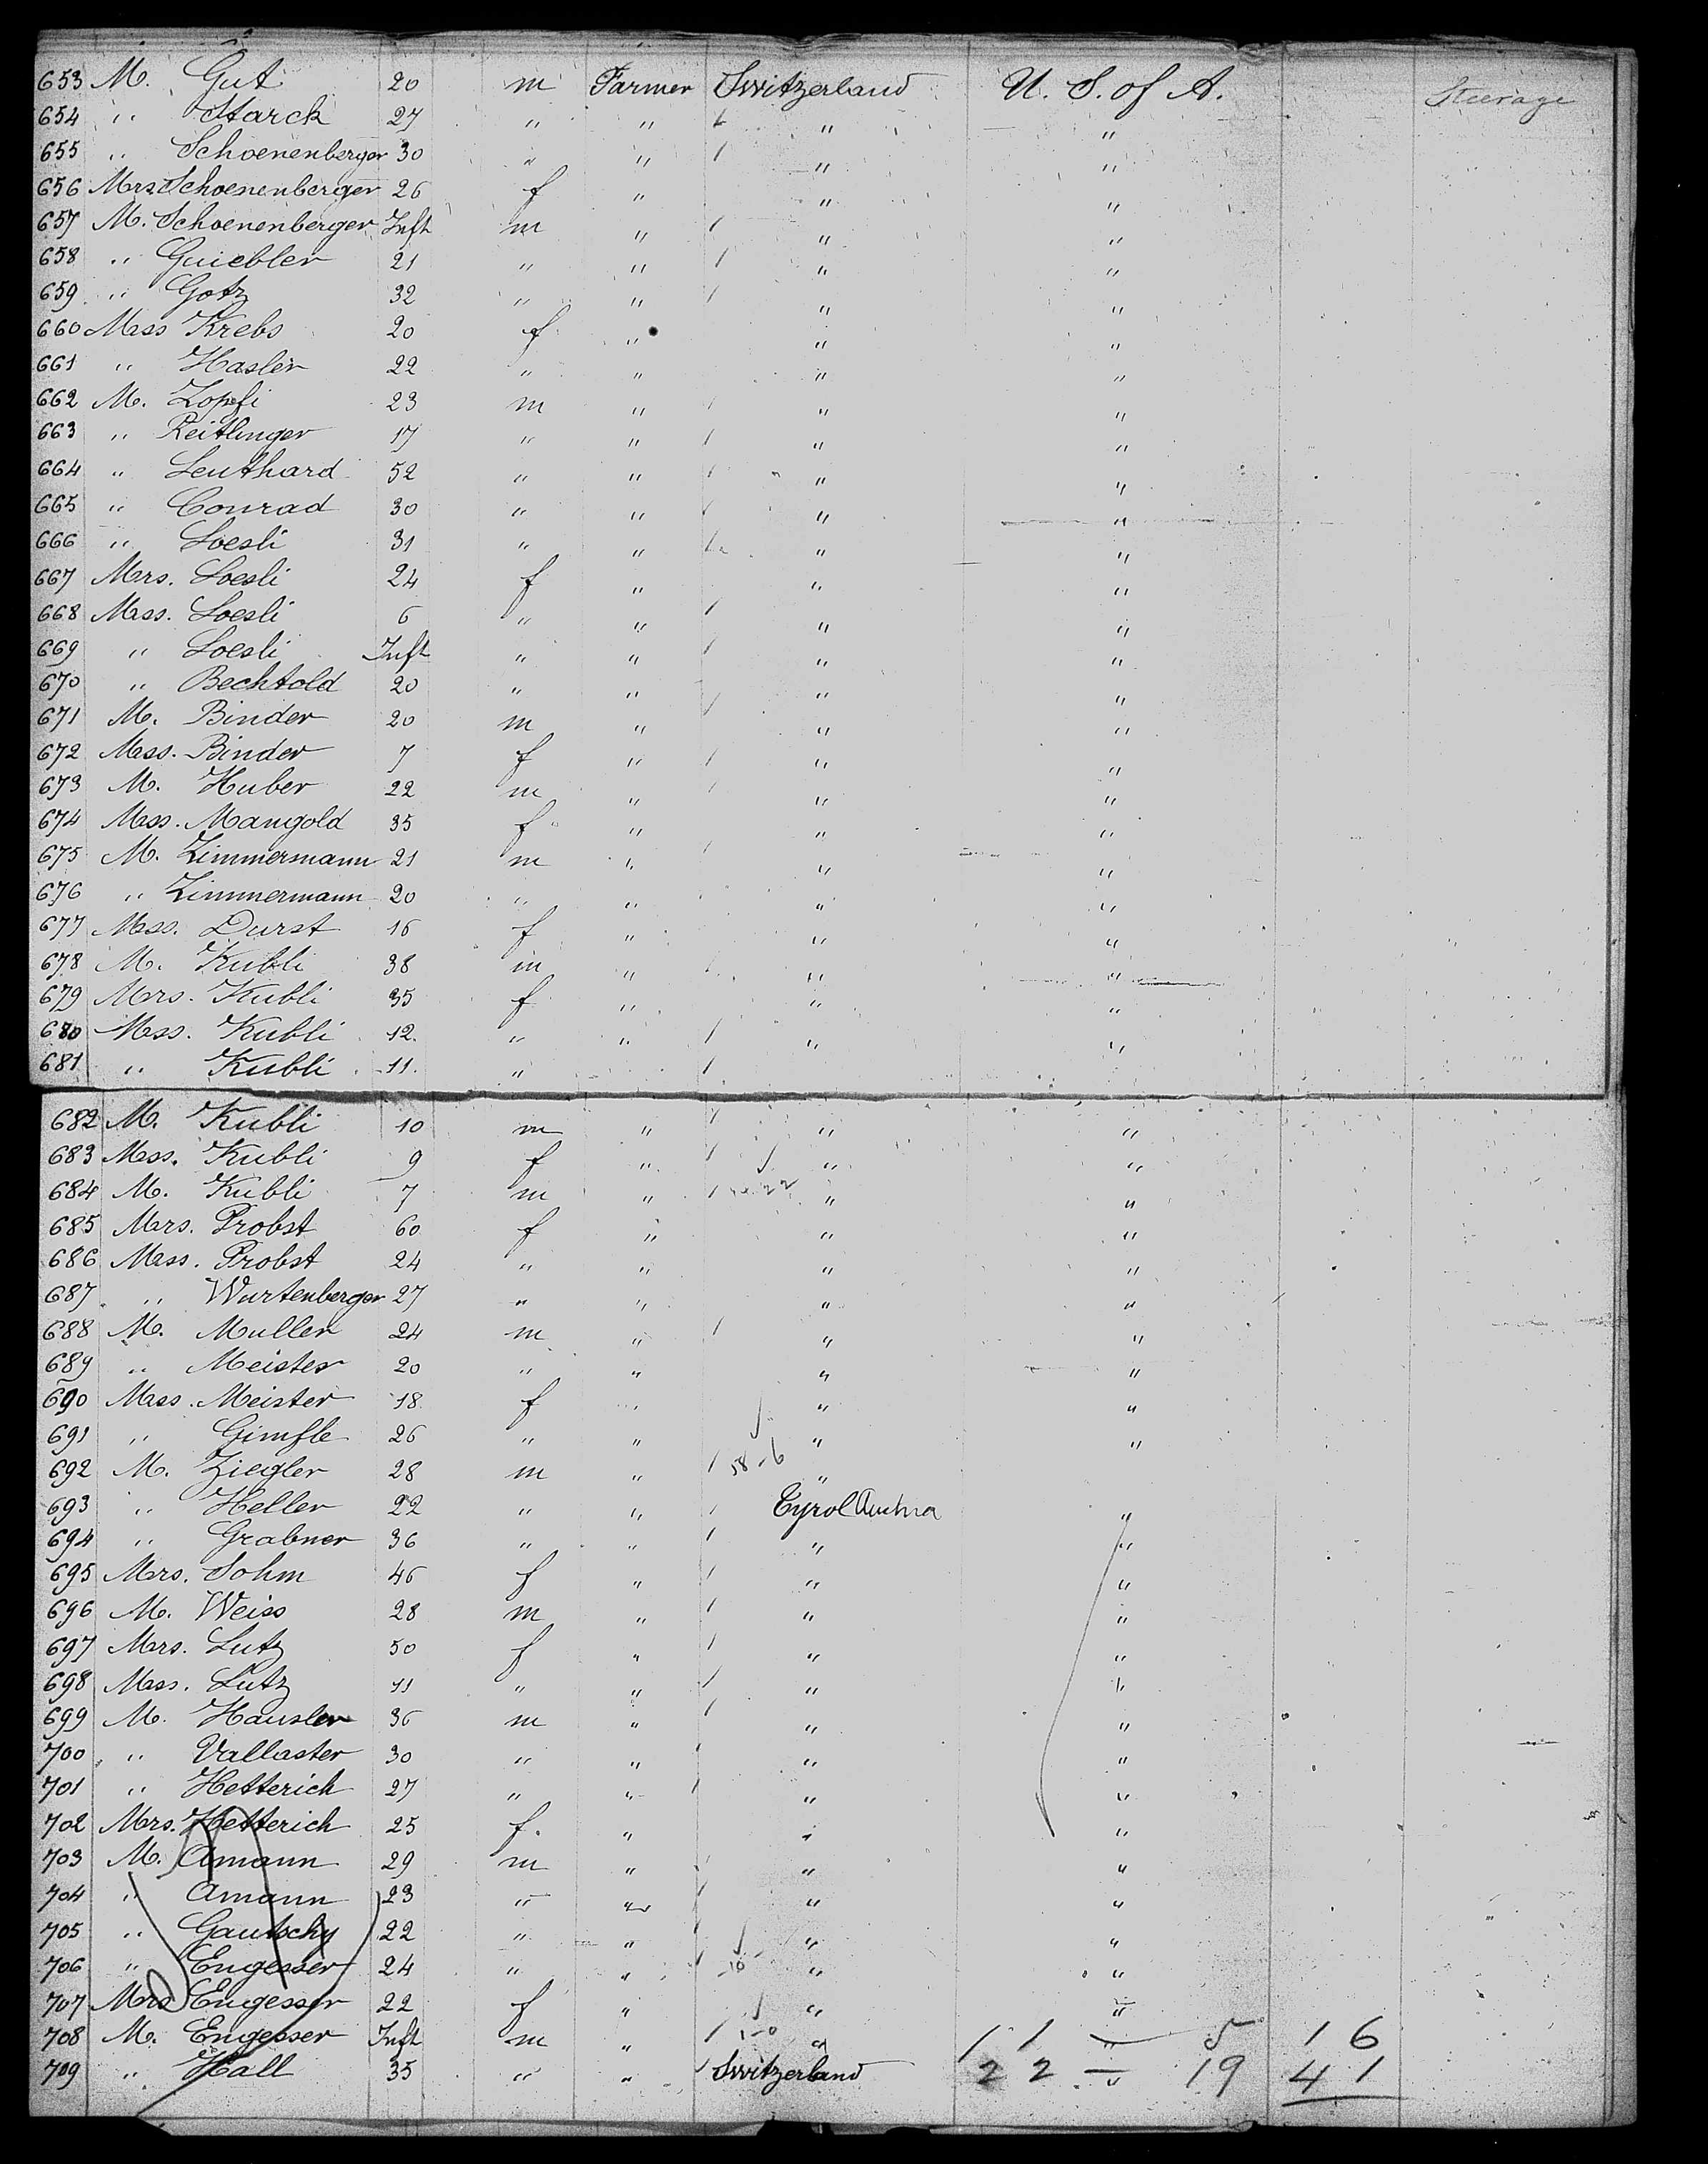 653 M. Gut 20 m Farmer Switzerland U. S. of A. Steerage
654 " Starck 27 " " " "
655 " Schoenenberger 30 " " " "
656 Mrs Schoenenberger 26 f " " "
657 M. Schoenenberger Inft m " " "
658 " Guiebler 21 " " " "
659 " Gotz 32 " " " "
660 Mess Krebs 20 f " " "
661 " Hasler 22 " " " "
662 M. Zopfi 23 m " " "
663 " Reitlinger 17 " " " "
664 " Leuthard 52 " " " "
665 " Conrad 30 " " " "
666 " Loesli 31 " " " "
667 Mrs. Loesli 24 f " " "
668 Mess. Loesli 6 " " " "
669 " Loesli Inft " " " "
670 " Bechtold 20 " " " "
671 M. Binder 20 m " " "
672 Mess. Binder 7 f " " "
673 M. Huber 22 m " " "
674 Mess. Mangold 35 f " " "
675 M. Zimmermann 21 m " " "
676 " Zimmermann 20 " " " "
677 Mess. Durst 16 f " " "
678 M. Kubli 38 m " " "
679 Mrs. Kubli 35 f " " "
680 Mess. Kubli 12. " " " "
681 " Kubli 11. "
682 M. Kubli 10 m " " "
683 Mess. Kubli 9 f " " "
684 M. Kubli 7 m " " "
685 Mrs. Probst 60 f " " "
686 Mess. Probst 24 " " " "
687 " Wurtenberger 27 " " " "
688 M. Muller 24 m " " "
689 " Meister 20 " " " "
690 Mess. Meister 18 f " " "
691 " Gimfle 26 " " " "
692 M. Ziegler 28 m " 58-6 "
693 " Heller 22 " " Tyrol Austria "
694 " Grabner 36 " " " "
695 Mrs. Sohm 46 f " " "
696 M. Weiss 28 m " " "
697 Mrs. Lutz 50 f " " "
698 Mess. Lutz 11 " " " "
699 M. Hausler 36 m " " "
700 " Vallaster 30 " " " "
701 " Hetterich 27 " " " "
702 Mrs. Hetterich 25 f. " " "
703 M. Amann 29 m " " "
704 " Amann 23 " " " "
705 " Gautschy 22 " " " "
706 " Engesser 24 " " 10 " "
707 Mrs Engesser 22 f " " "
708 M. Engesser Inft m " 1-0 " 11 — 5 16
709 " Hall 35 " " Switzerland " 22 — 19 41